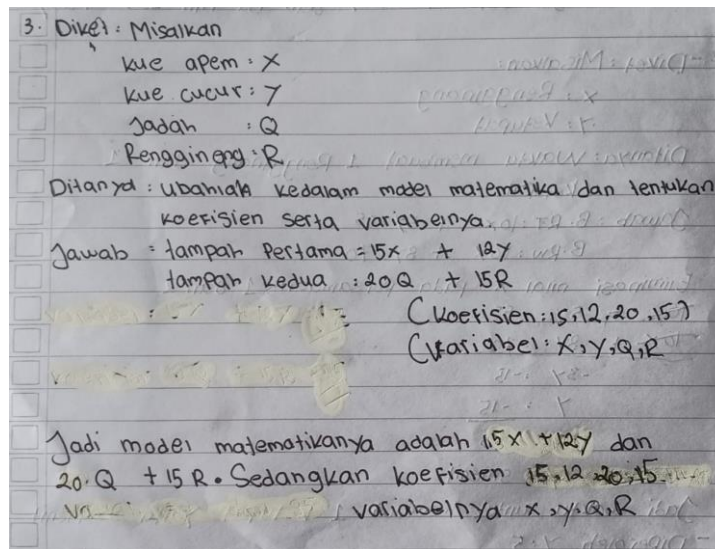 3. Diket : Misalkan
kue apem : X
kue cucur : Y
Jadah : Q
Renggineng : R
Ditanya : Ubahlah kedalam model matematika dan tentukan
koefisien serta variabelnya.
Jawab : tampah Pertama = 15x + 12y
tampah kedua : 20Q + 15R
(koefisien : 15, 12, 20, 15)
(Variabel : X, Y, Q, R
Jadi model matematikanya adalah 15x + 12y dan
20.Q + 15 R. Sedangkan koefisien 15, 12, 20, 15
variabelnya x, y, Q, R